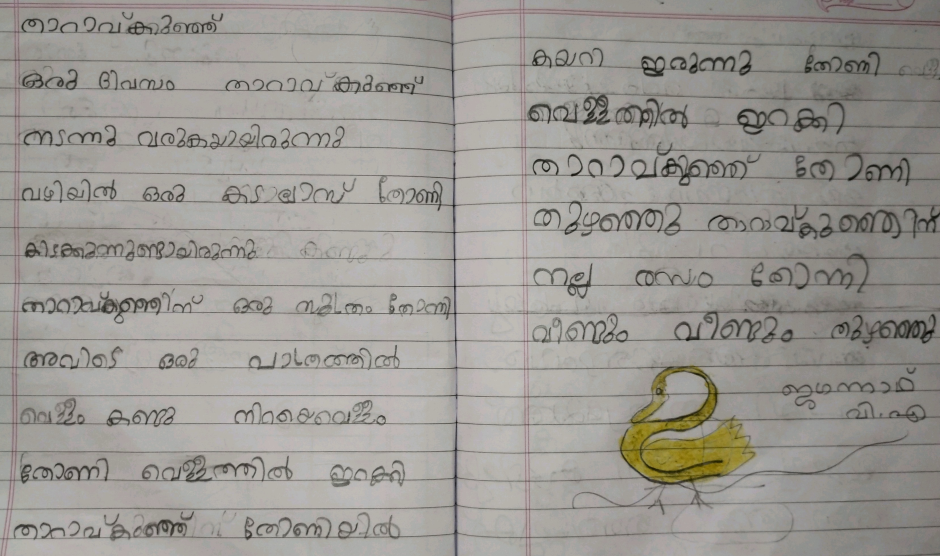 താറാവ്കുഞ്ഞ്
ഒരു ദിവസം താറാവ് കുഞ്ഞ്
നടന്നു വരുകയായിരുന്നു
വഴിയിൽ ഒരു കടലാസ് തോണി
കിടക്കുന്നുണ്ടായിരുന്നു
താറാവ്കുഞ്ഞിന് ഒരു സൂത്രം തോന്നി
അവിടെ ഒരു പാത്രത്തിൽ
വെള്ളം കണ്ടു നിറയെവെള്ളം
തോണി വെള്ളത്തിൽ ഇറക്കി
താറാവ്കുഞ്ഞ് തോണിയിൽ
കയറി ഇരുന്നു തോണി
വെള്ളത്തിൽ ഇറക്കി
താറാവ്കുഞ്ഞ് തോണി
തുഴഞ്ഞു താറാവ്കുഞ്ഞിന്
നല്ല രസം തോന്നി
വീണ്ടും വീണ്ടും തുഴഞ്ഞു
ജഗന്നാഥ്
വി.എ